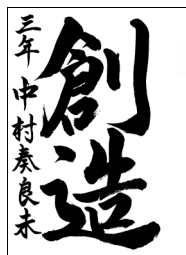 創造
三年 中村奏良未